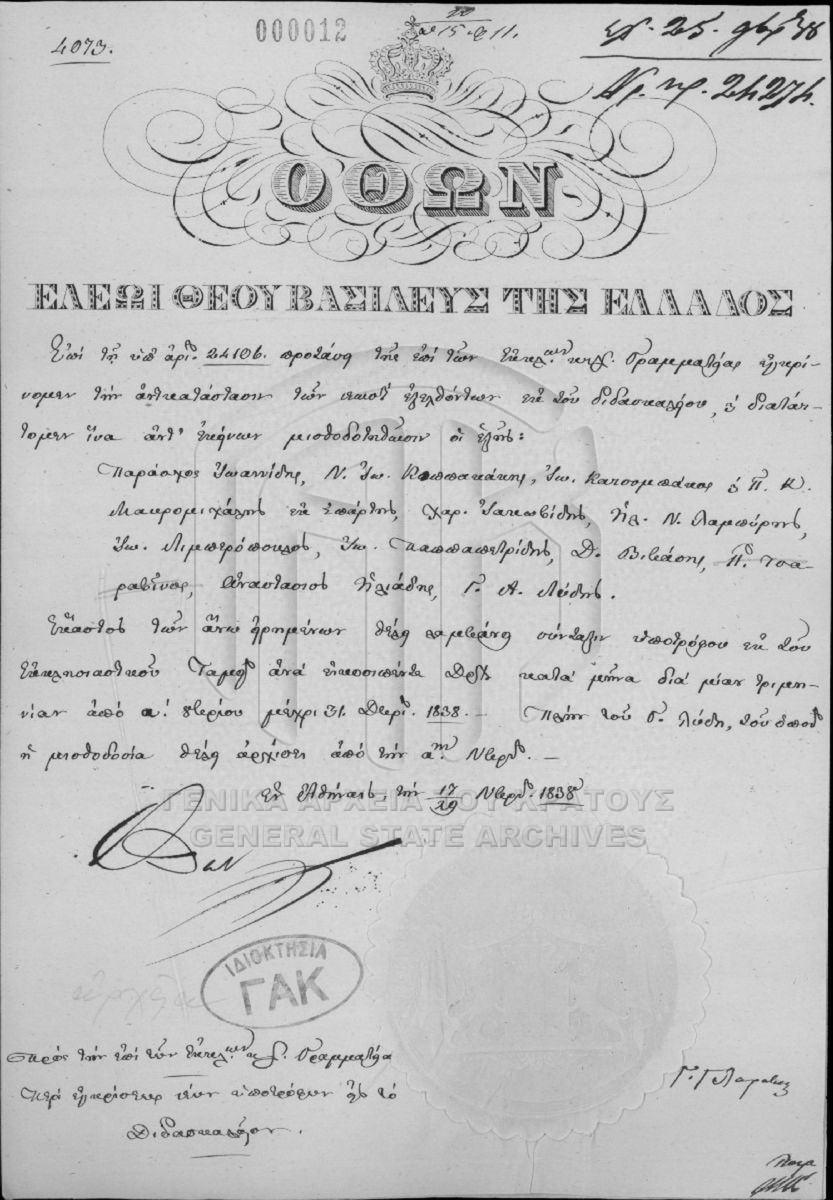 4073.
000012
ΟΘΩΝ
ΕΛΕΩΙ ΘΕΟΥ ΒΑΣΙΛΕΥΣ ΤΗΣ ΕΛΛΑΔΟΣ
Ἐπὶ τῇ ὑπ' ἀριθ. 24106. προτάσει τῆς ἐπὶ τῶν Ἐκκλ.ῶν κτλ. Γραμματείας ἐγκρί-
νομεν τὴν ἀντικατάστασιν τῶν ἐξελθόντων ἐκ τοῦ διδασκαλείου, ϗ διατάτ-
τομεν ἵνα ἀντ' ἐκείνων μισθοδοτηθῶσιν οἱ ἑξῆς:
Παράσχος Ἰωαννίδης, Ν. Ἰω. Ἰω. Κατσομπάκος ϗ Π. Κ.
Μαυρομιχάλης ἐκ Σπάρτης, Χαρ. Ἰακωβίδης, Ἠλ. Ν. Λαμπύρης,
Ἰω. Λιμπερόπουλος, Ἰω. Παππαπετρίδης, Δ. Βιβάσης,
Ἀναστάσιος Ἠλιάδης, Γ. Α. Λύδης.
Ἕκαστος τῶν ἄνω εἰρημένων θέλει λαμβάνει σύνταξιν ὑποτρόφου ἐκ τοῦ
Ἐκκλησιαστικοῦ Ταμείου ἀνὰ εἰκοσιπέντε Δρχ κατὰ μῆνα διὰ μίαν τριμη-
νίαν ἀπὸ α! 8βερίου μέχρι 31. Δβερίου 1838.— Πλὴν τοῦ Γ. Λύδη, τοῦ ὁποίου
ἡ μισθοδοσία θέλει ἀρχίσει ἀπὸ τὴν α.ην Νβερίου.—
Ἐν Ἀθήναις, τὴν 17/29 Νβερίου. 1838
Ὄθων
ΓΕΝΙΚΑ ΑΡΧΕΙΑ ΤΟΥ ΚΡΑΤΟΥΣ
GENERAL STATE ARCHIVES
ΙΔΙΟΚΤΗΣΙΑ
ΓΑΚ
Πρὸς τὴν ἐπὶ τῶν Ἐκκλ.ῶν κ. Γραμματεία
Περὶ ἐγκρίσεως νέων ὑποτρόφων εἰς τὸ
Διδασκαλεῖον.